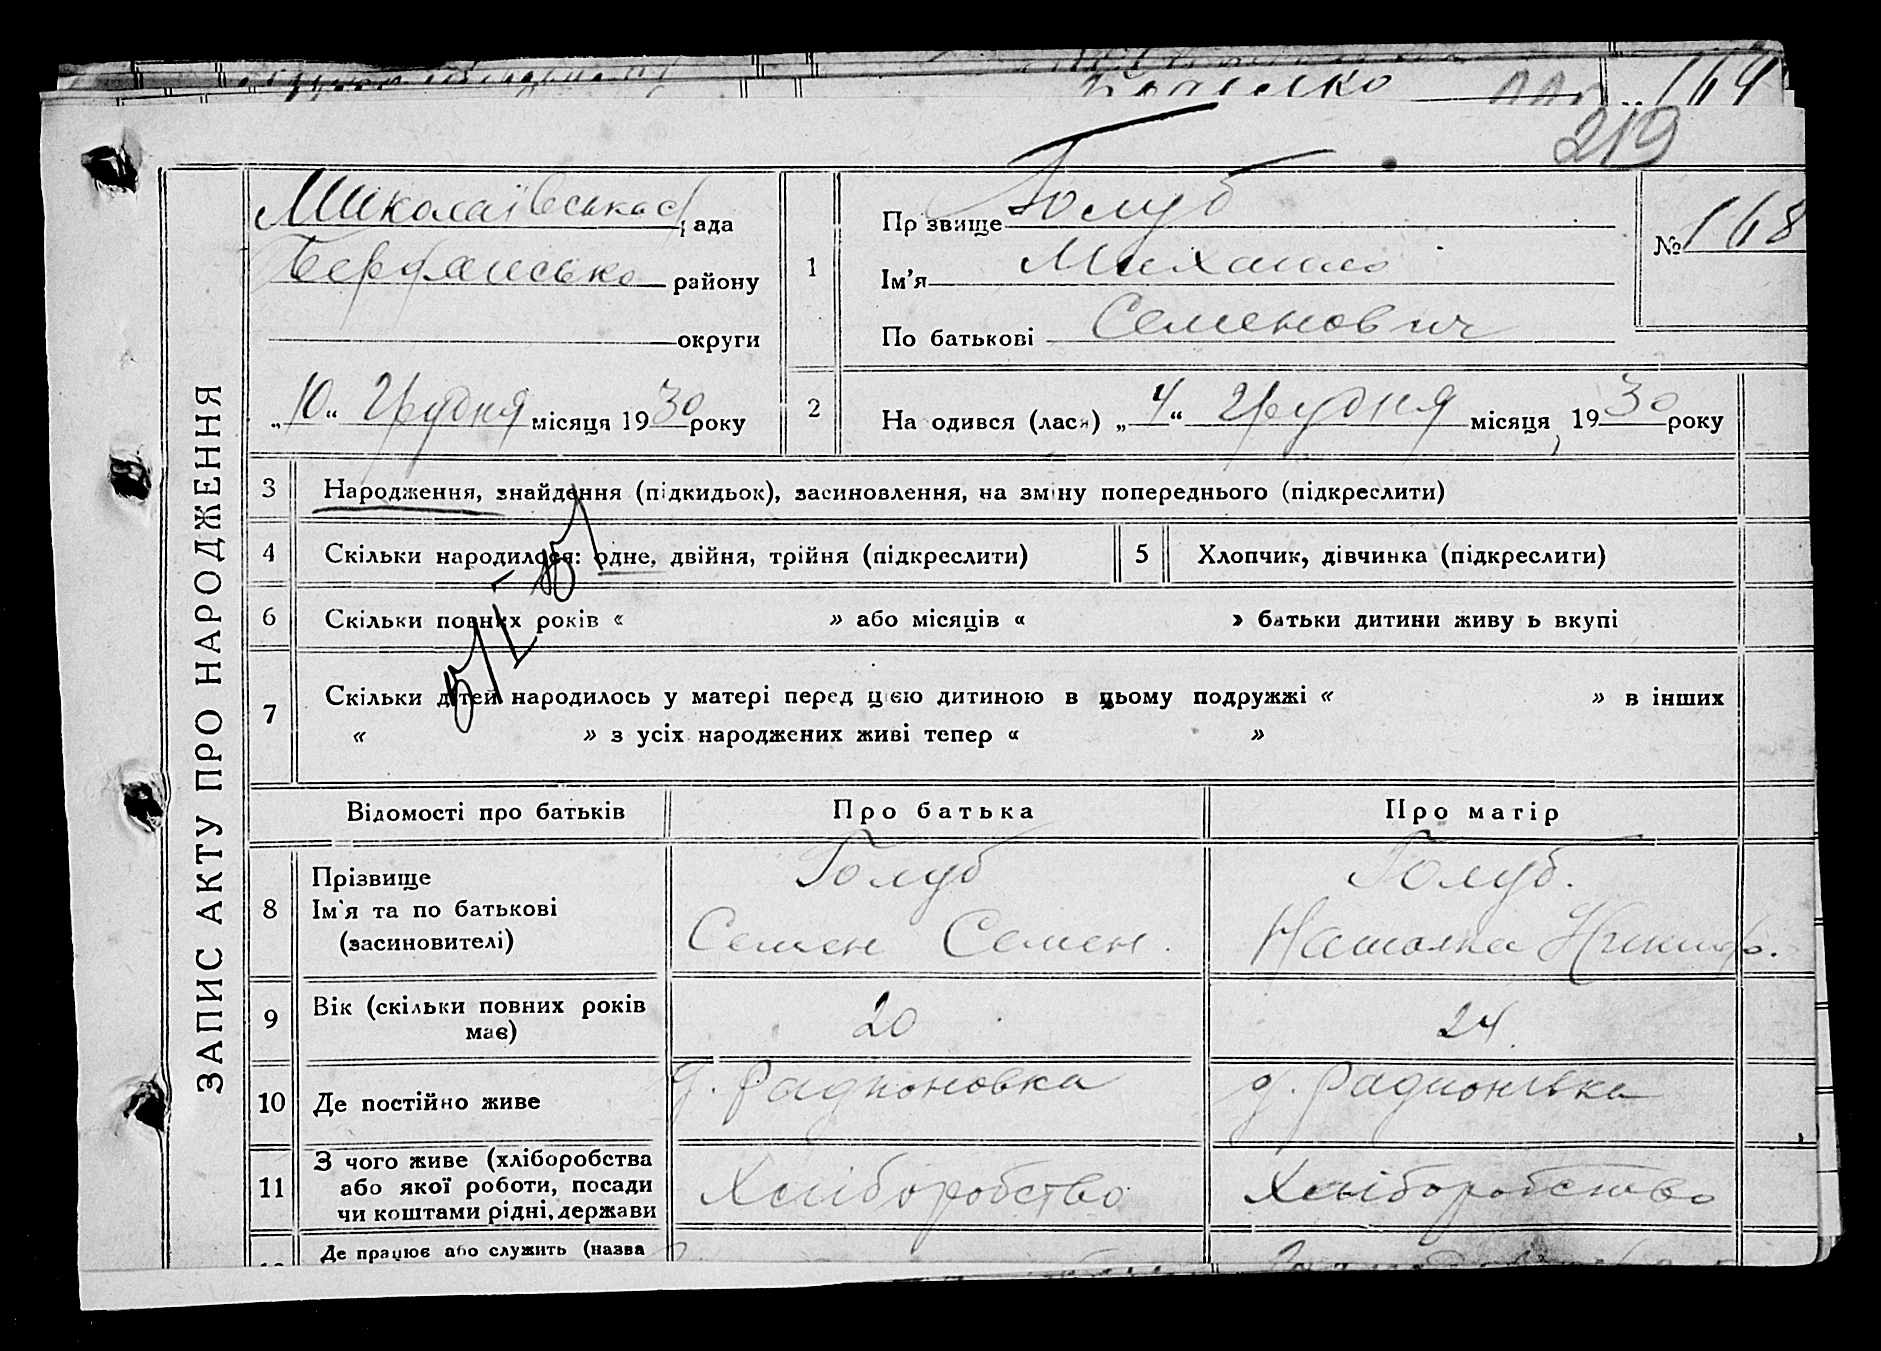 164
219
ЗАПИС АКТУ ПРО НАРОДЖЕННЯ
Миколаївська с/рада
Бердянсько району
округи
„10“ Грудня місяця 1930 року
1
Прізвище Голуб
Ім'я Михаило
По батькові Семенович
№ 168
2
Народився (лася) „4“ Грудня місяця 1930 року
3 Народження, знайдення (підкидьок), засиновлення, на зміну попереднього (підкреслити)
4 Скільки народилося: одне, двійня, трійня (підкреслити)
5 Хлопчик, дівчинка (підкреслити)
6 Скільки повних років « » або місяців « » батьки дитини живуть вкупі
7 Скільки дітей народилось у матері перед цією дитиною в цьому подружжі « » в інших
« » з усіх народжених живі тепер « »
Відомості про батьків Про батька Про матір
8 Прізвище
Ім'я та по батькові
(засиновителі)
Голуб
Семен Семен.
Голуб.
Наталка Никиф.
9 Вік (скільки повних років
має)
20
24
10 Де постійно живе
д. Радионовка
д. Радионівка
11 З чого живе (хліборобства
або якої роботи, посади
чи коштами рідні, держави
Хліборобство
Хліборобство
Де працює або служить (назва